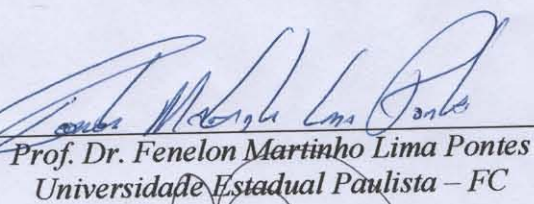 Prof. Dr. Fenelon Martinho Lima Pontes
Universidade Estadual Paulista – FC